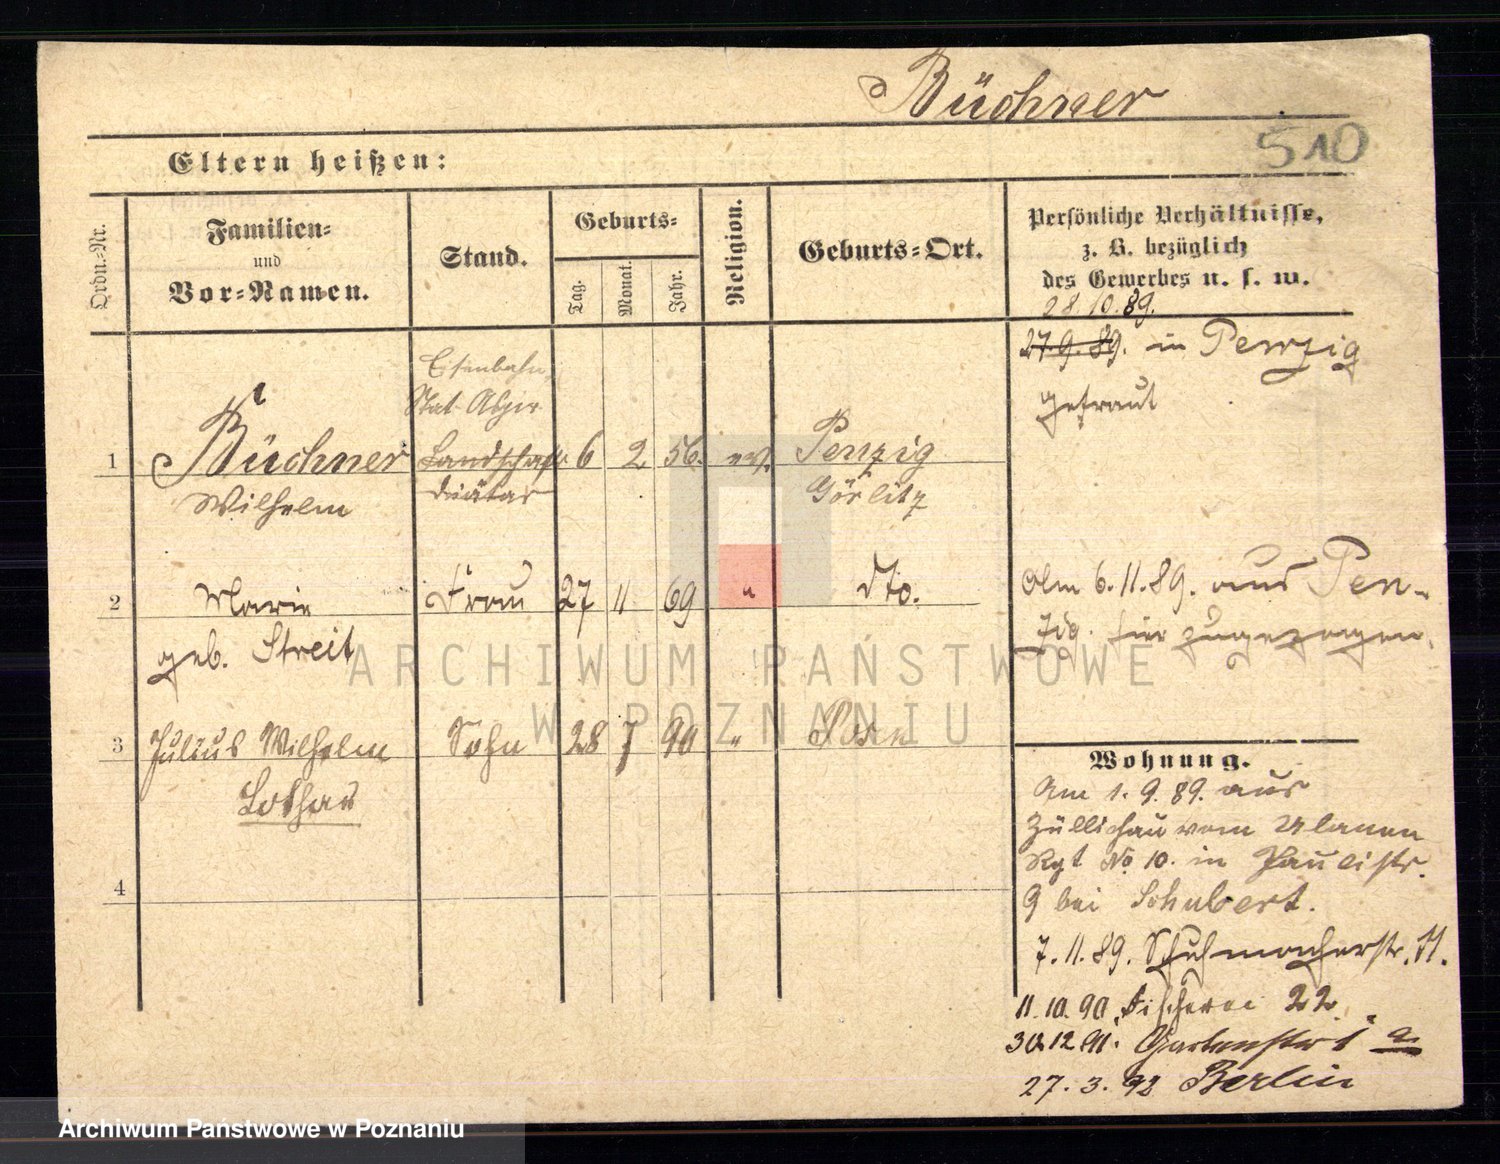 Büchner
510
Eltern heißen:
Ordn.-Nr.
Familien-
und
Vor-Namen.
Stand.
Geburts-
Tag.
Monat.
Jahr.
Religion.
Geburts-Ort.
Persönliche Verhältnisse,
z. B. bezüglich
des Gewerbes u. s. w.
28.10.89.
27.9.89. in Penzig
getraut
Eisenbahn
Stat. Aspir.
1 Büchner Landschafts 6 2 56. ev. Penzig
Wilhelm Diätar Görlitz
2 Marie Frau 27 11 69 " dto.
geb. Streit
Am 6.11.89. aus Pen-
zig. hier zugezogen.
3 Julius Wilhelm Sohn 28 7 90 " Posen
Lothar
4
Wohnung.
Am 1.9.89. aus
Züllichau vom Ulanen
Rgt No 10. in Paulistr.
9 bei Schubert.
7.11.89. Schuhmacherstr. 11.
11.10.90. Fischerei 22
30.12.91. Gartenstr 1 a
27.3.92 Berlin
ARCHIWUM PAŃSTWOWE
W POZNANIU
Archiwum Państwowe w Poznaniu